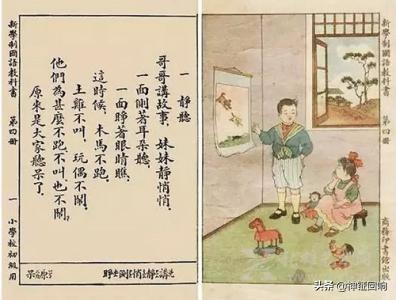 新學制國語教科書
第四冊
商務印書館出版
一 靜聽
哥哥講故事,妹妹靜悄悄,
一面側著耳朵聽,
一面睜著眼睛瞧.
這時候,木馬不跑,
土雞不叫,玩偶不鬧.
他們為甚麼不跑不叫也不鬧.
原來是大家聽呆了.
新學制國語教科書
第四冊
一
小學校初級用
头条 @神征回响